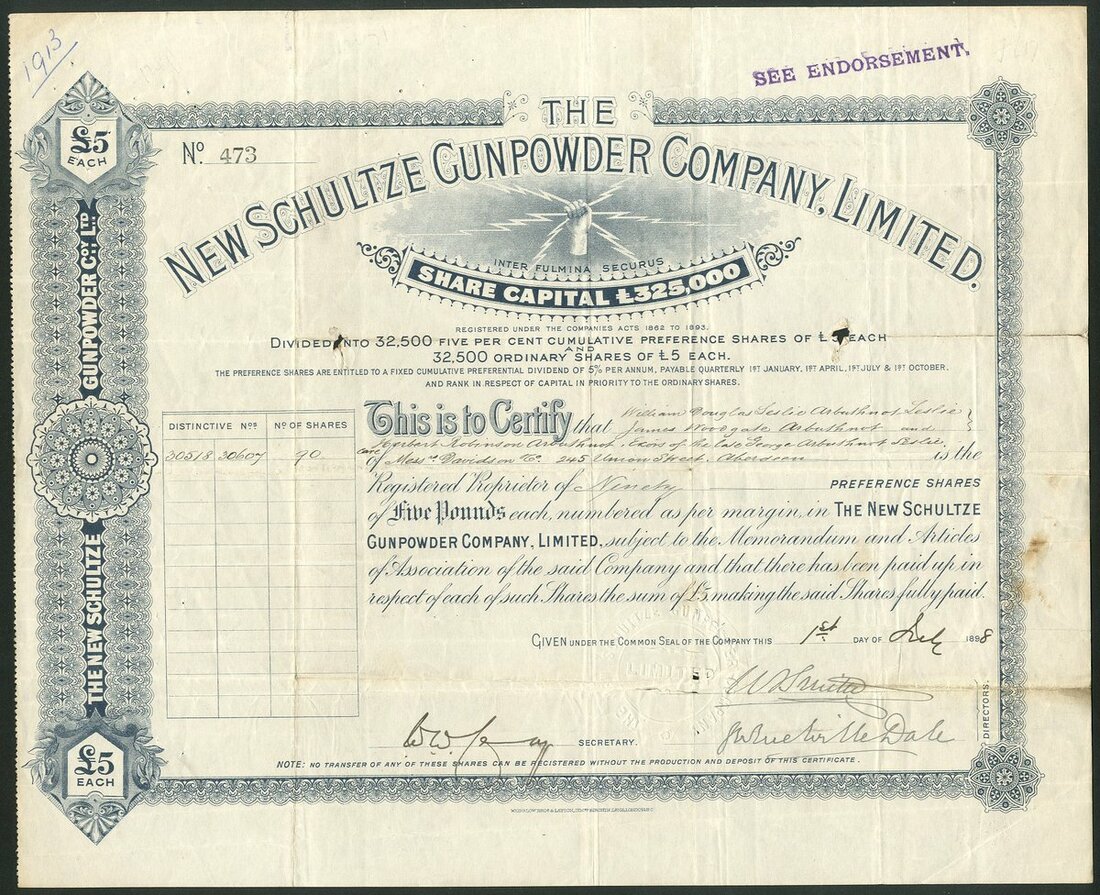 1913
SEE ENDORSEMENT.
£5
EACH
THE
No. 473
NEW SCHULTZE GUNPOWDER COMPANY, LIMITED.
INTER FULMINA SECURUS
SHARE CAPITAL £325,000
REGISTERED UNDER THE COMPANIES ACTS 1862 TO 1893.
DIVIDED INTO 32,500 FIVE PER CENT CUMULATIVE PREFERENCE SHARES OF £5 EACH
AND
32,500 ORDINARY SHARES OF £5 EACH.
THE PREFERENCE SHARES ARE ENTITLED TO A FIXED CUMULATIVE PREFERENTIAL DIVIDEND OF 5% PER ANNUM, PAYABLE QUARTERLY 1ST JANUARY, 1ST APRIL, 1ST JULY & 1ST OCTOBER.
AND RANK IN RESPECT OF CAPITAL IN PRIORITY TO THE ORDINARY SHARES.
DISTINCTIVE Nos. No. OF SHARES
30518 30607 90
This is to Certify that William Douglas Leslie Arbuthnot Leslie
James Woodgate Arbuthnot and
Herbert Robinson Arbuthnot, Exors of the late George Arbuthnot Leslie
of Messrs. Davidson 245 Union Street, Aberdeen is the
Registered Proprietor of Ninety PREFERENCE SHARES
of Five Pounds each, numbered as per margin, in THE NEW SCHULTZE
GUNPOWDER COMPANY, LIMITED, subject to the Memorandum and Articles
of Association of the said Company and that there has been paid up in
respect of each of such Shares the sum of £5, making the said Shares fully paid.
GIVEN UNDER THE COMMON SEAL OF THE COMPANY THIS 1st DAY OF July 1898
LIMITED
DIRECTORS.
SECRETARY.
NOTE: NO TRANSFER OF ANY OF THESE SHARES CAN BE REGISTERED WITHOUT THE PRODUCTION AND DEPOSIT OF THIS CERTIFICATE.
THE NEW SCHULTZE GUNPOWDER COY. LTD.
£5
EACH